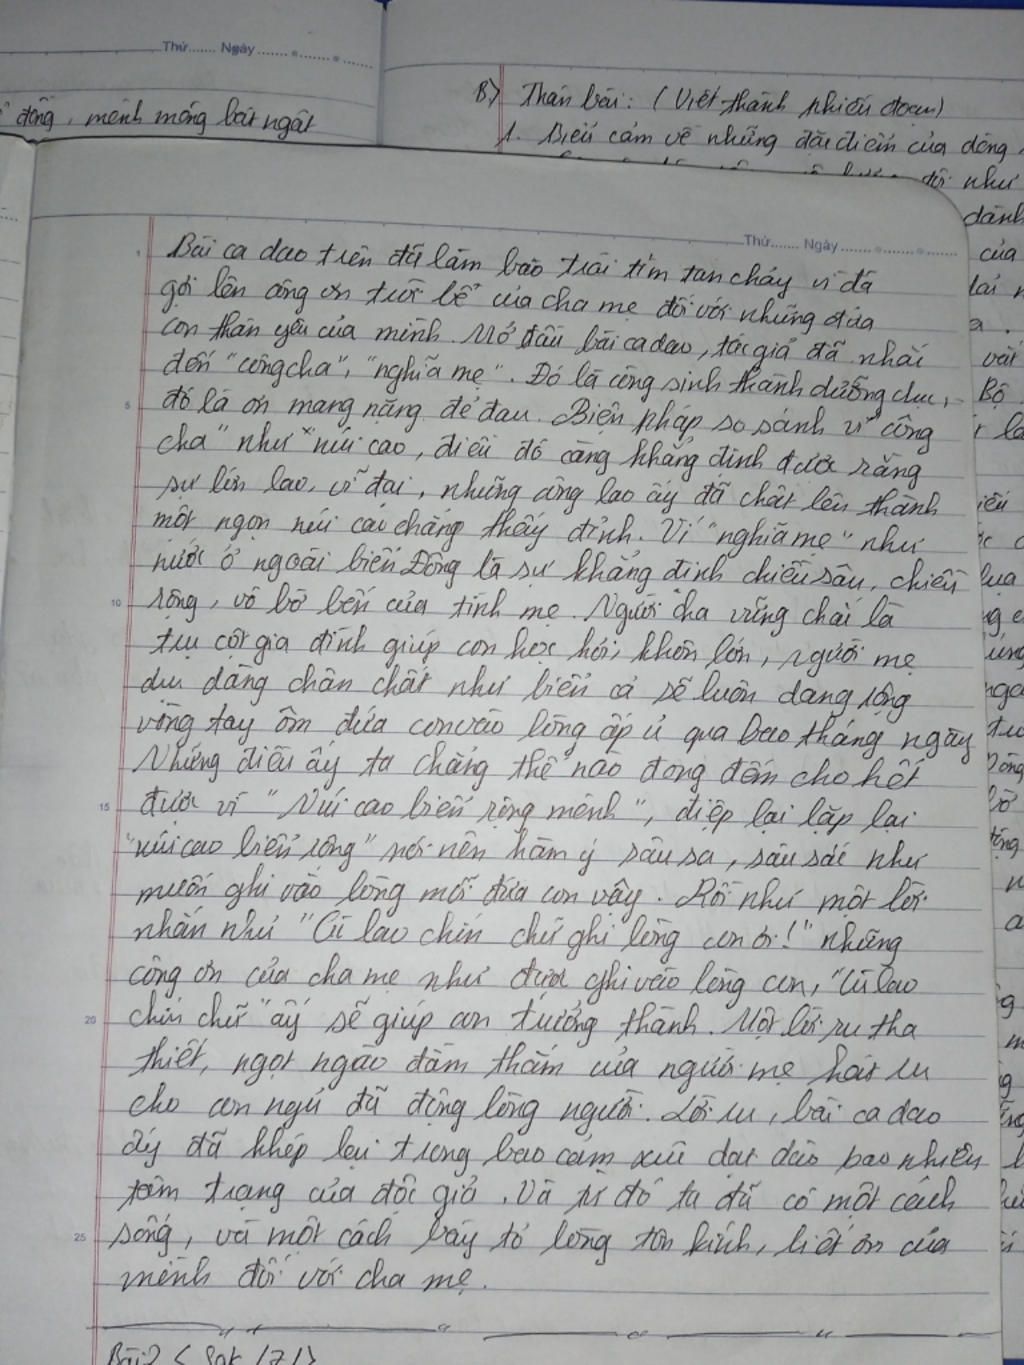 Thứ....... Ngày
đồng, mênh mông bát ngát
B) Thân bài: (Viết thành nhiều đoạn)
1. Biểu cảm về những đặc điểm của dòng
như
dành
của
lại
vài
Bộ
Thứ....... Ngày
Bài ca dao trên đã làm bao trái tim tan chảy vì đã
gợi lên công ơn trời bể của cha mẹ đối với những đứa
con thân yêu của mình. Mở đầu bài ca dao, tác giả đã nhắc
đến "công cha", "nghĩa mẹ". Đó là công sinh thành dưỡng dục,
5 đó là ơn mang nặng đẻ đau. Biện pháp so sánh ví "công
cha" như "núi cao, điều đó càng khẳng định được rằng
sự lớn lao, vĩ đại, những công lao ấy đã chất lên thành
một ngọn núi cao chẳng thấy đỉnh. Ví "nghĩa mẹ" như
nước ở ngoài biển Đông là sự khẳng định chiều sâu, chiều
10 rộng, vô bờ bến của tình mẹ. Người cha vững chãi là
trụ cột gia đình giúp con học hỏi, khôn lớn, người mẹ
dịu dàng chân chất như biển cả sẽ luôn dang rộng
vòng tay ôm đứa con vào lòng ấp ủ qua bao tháng ngày
Những điều ấy ta chẳng thể nào đong đếm cho hết
15 được vì "Núi cao biển rộng mênh", điệp lại lặp lại
"núi cao biển rộng" nói nên hàm ý sâu sa, sâu sắc như
muốn ghi vào lòng mỗi đứa con vậy. Rồi như một lời
nhắn như "Cù lao chín chữ ghi lòng con ơi!" những
công ơn của cha mẹ như được ghi vào lòng con, "Cù lao
20 chín chữ" ấy sẽ giúp con trưởng thành. Một lời ru tha
thiết, ngọt ngào đằm thắm của người mẹ hát ru
cho con ngủ đã động lòng người. Lời ru, bài ca dao
ấy đã khép lại trong bao cảm xúc dạt dào bao nhiêu
tâm trạng của độc giả. Và từ đó ta đã có một cách
25 sống, và một cách bày tỏ lòng tôn kính, biết ơn của
mình đối với cha mẹ.
Bài 2 &lt; Sgk /71&gt;